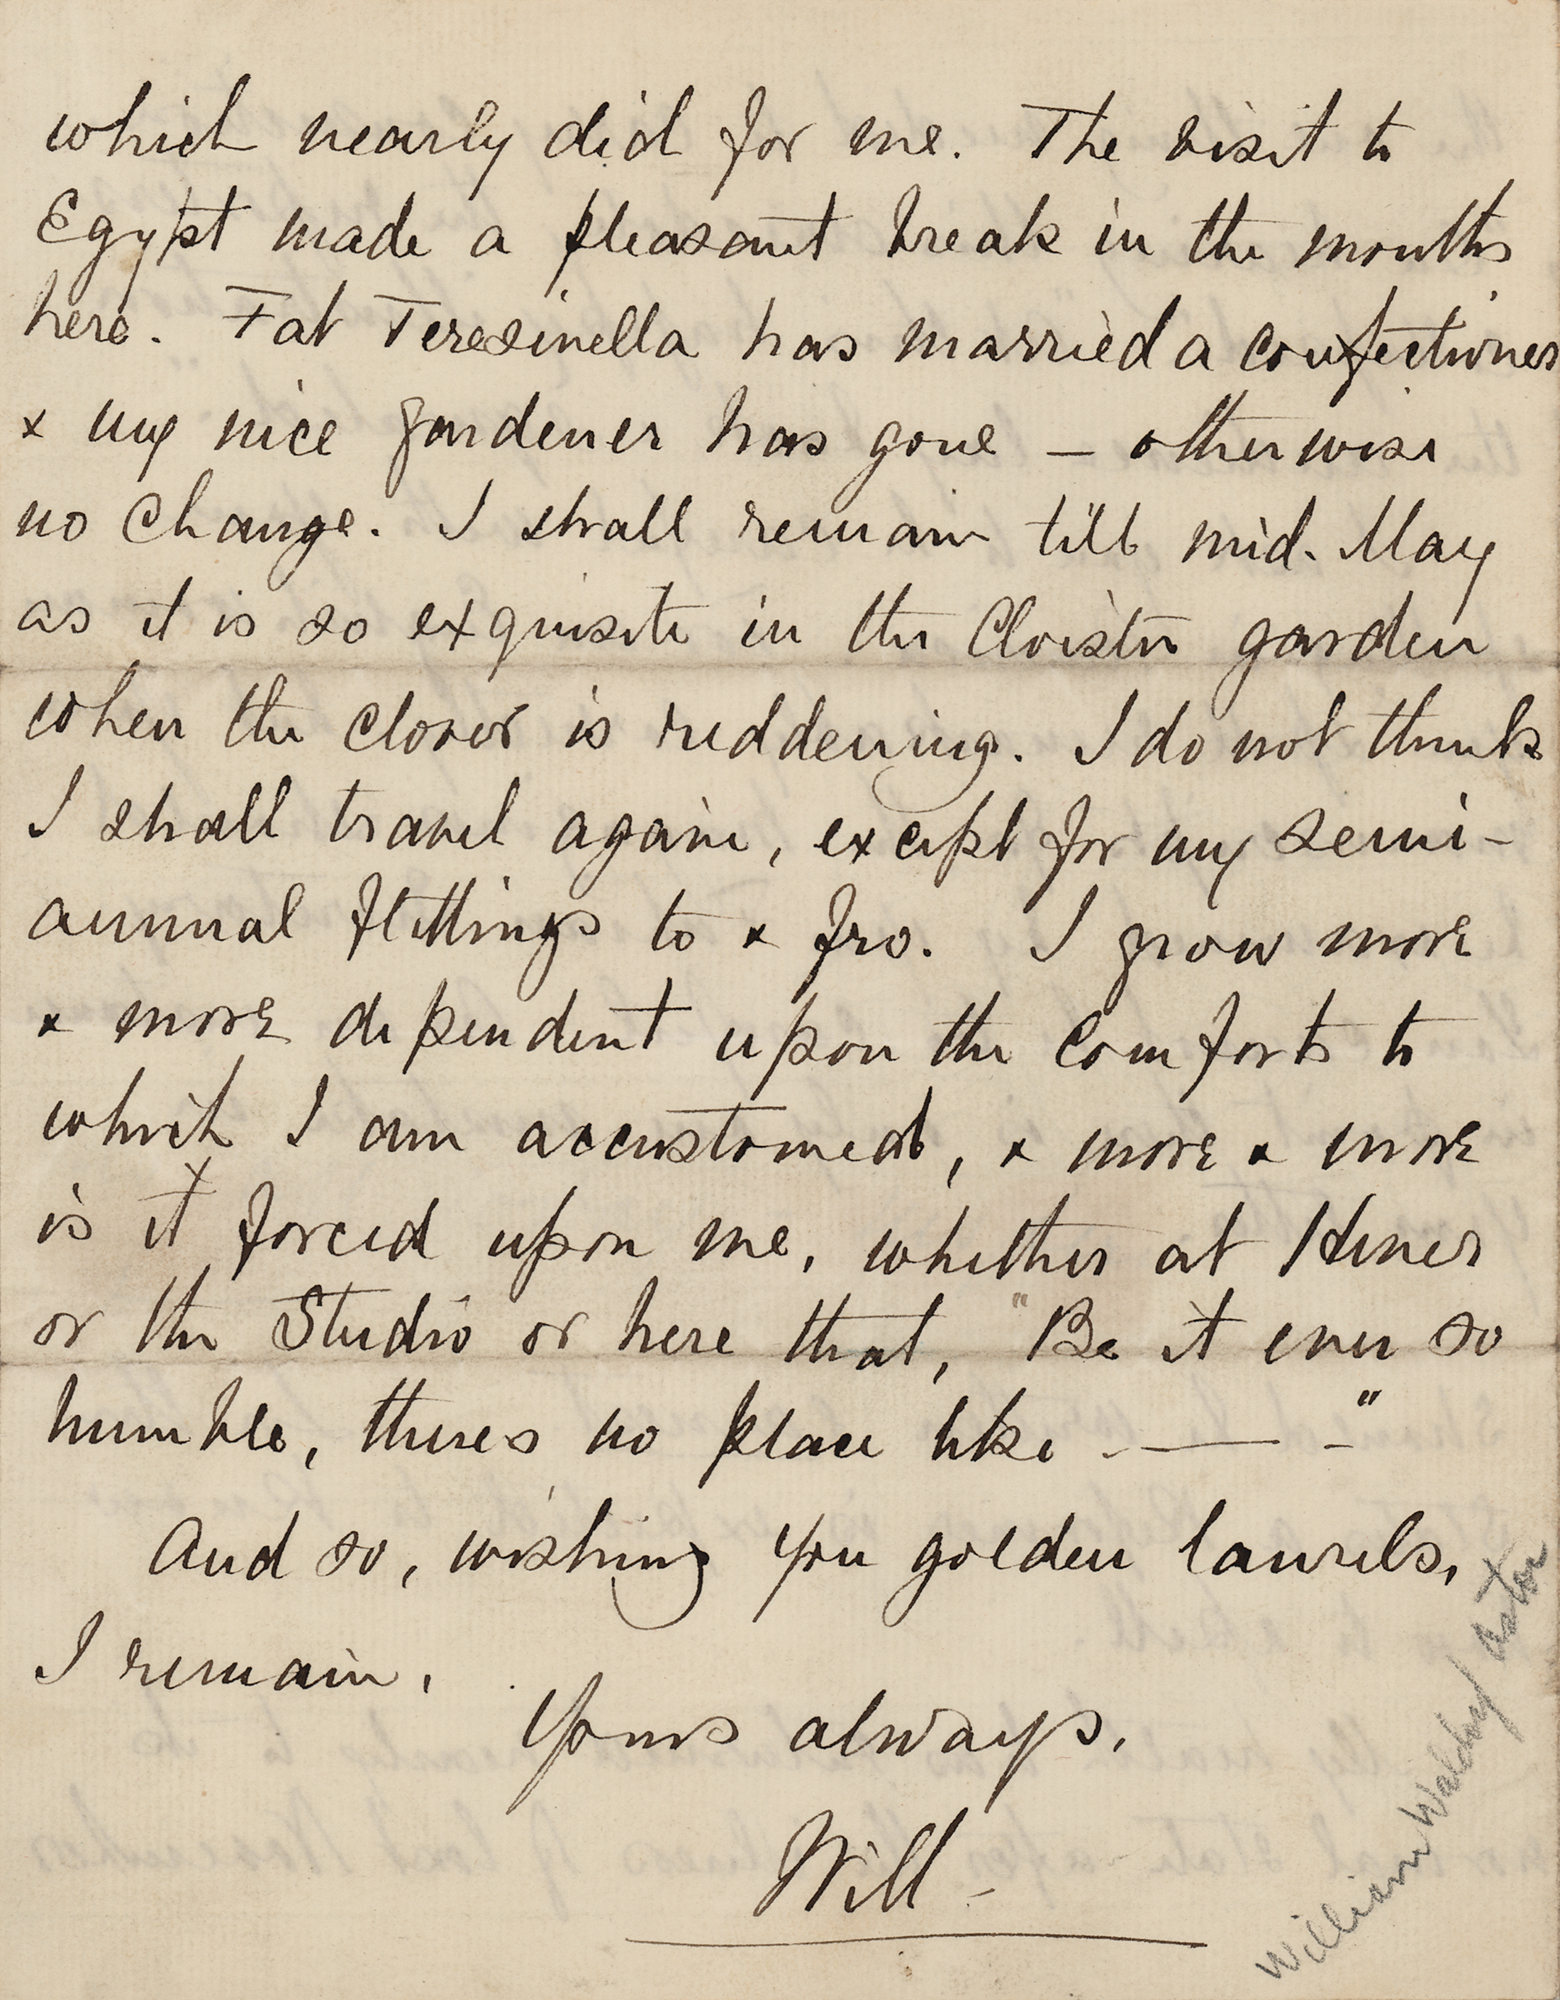 which nearly did for me. The visit to
Egypt made a pleasant break in the months
here. Fat Teresinella has married a confectioner
& my nice gardener has gone – otherwise
no change. I shall remain till mid-May
as it is so exquisite in the Cloister garden
when the clover is reddening. I do not think
I shall travel again, except for my semi-
annual flittings to & fro. I grow more
& more dependent upon the comforts to
which I am accustomed, & more & more
is it forced upon me, whether at Hever
or the Studio or here that, "Be it ever so
humble, there's no place like — – "
And so, wishing you golden laurels,
I remain,
Yours always,
Will –
William Waldorf Astor